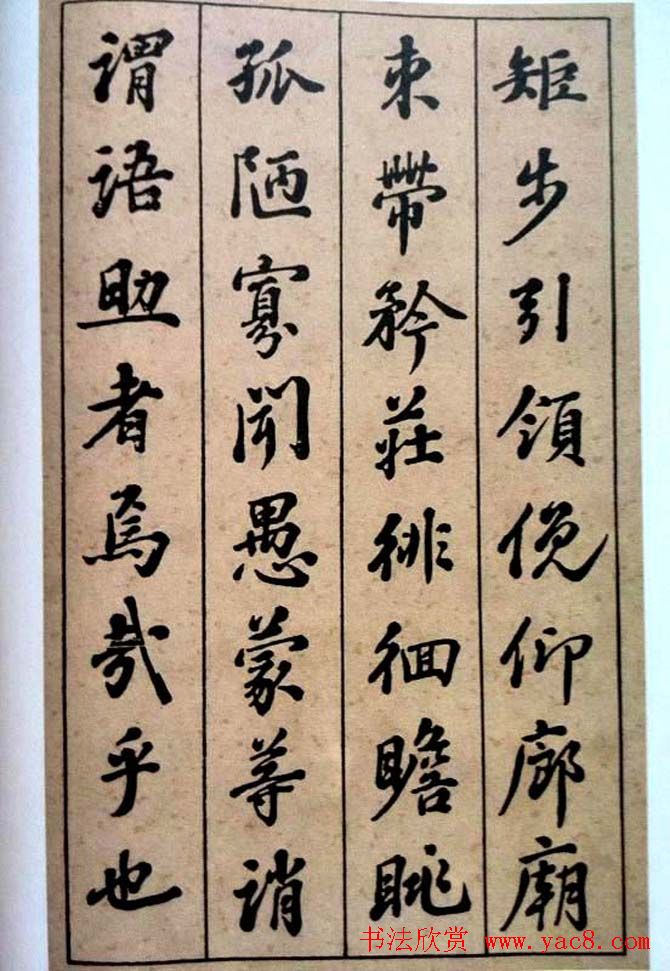 矩步引領俛仰廊廟
束帶矜莊徘徊瞻眺
孤陋寡聞愚蒙等誚
謂語助者焉哉乎也
书法欣赏 www.yac8.com